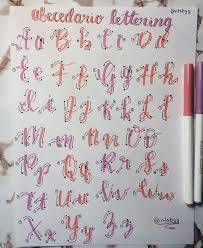 abecedario lettering
@nlsbys
Aa Bb Cc Dd
Ee Ff Gg Hh
Ii Jj Kk Ll
Mm Nn Ññ Oo
Pp Qq Rr Ss
Tt Uu Vv Ww
Xx Yy Zz
@nlsbys